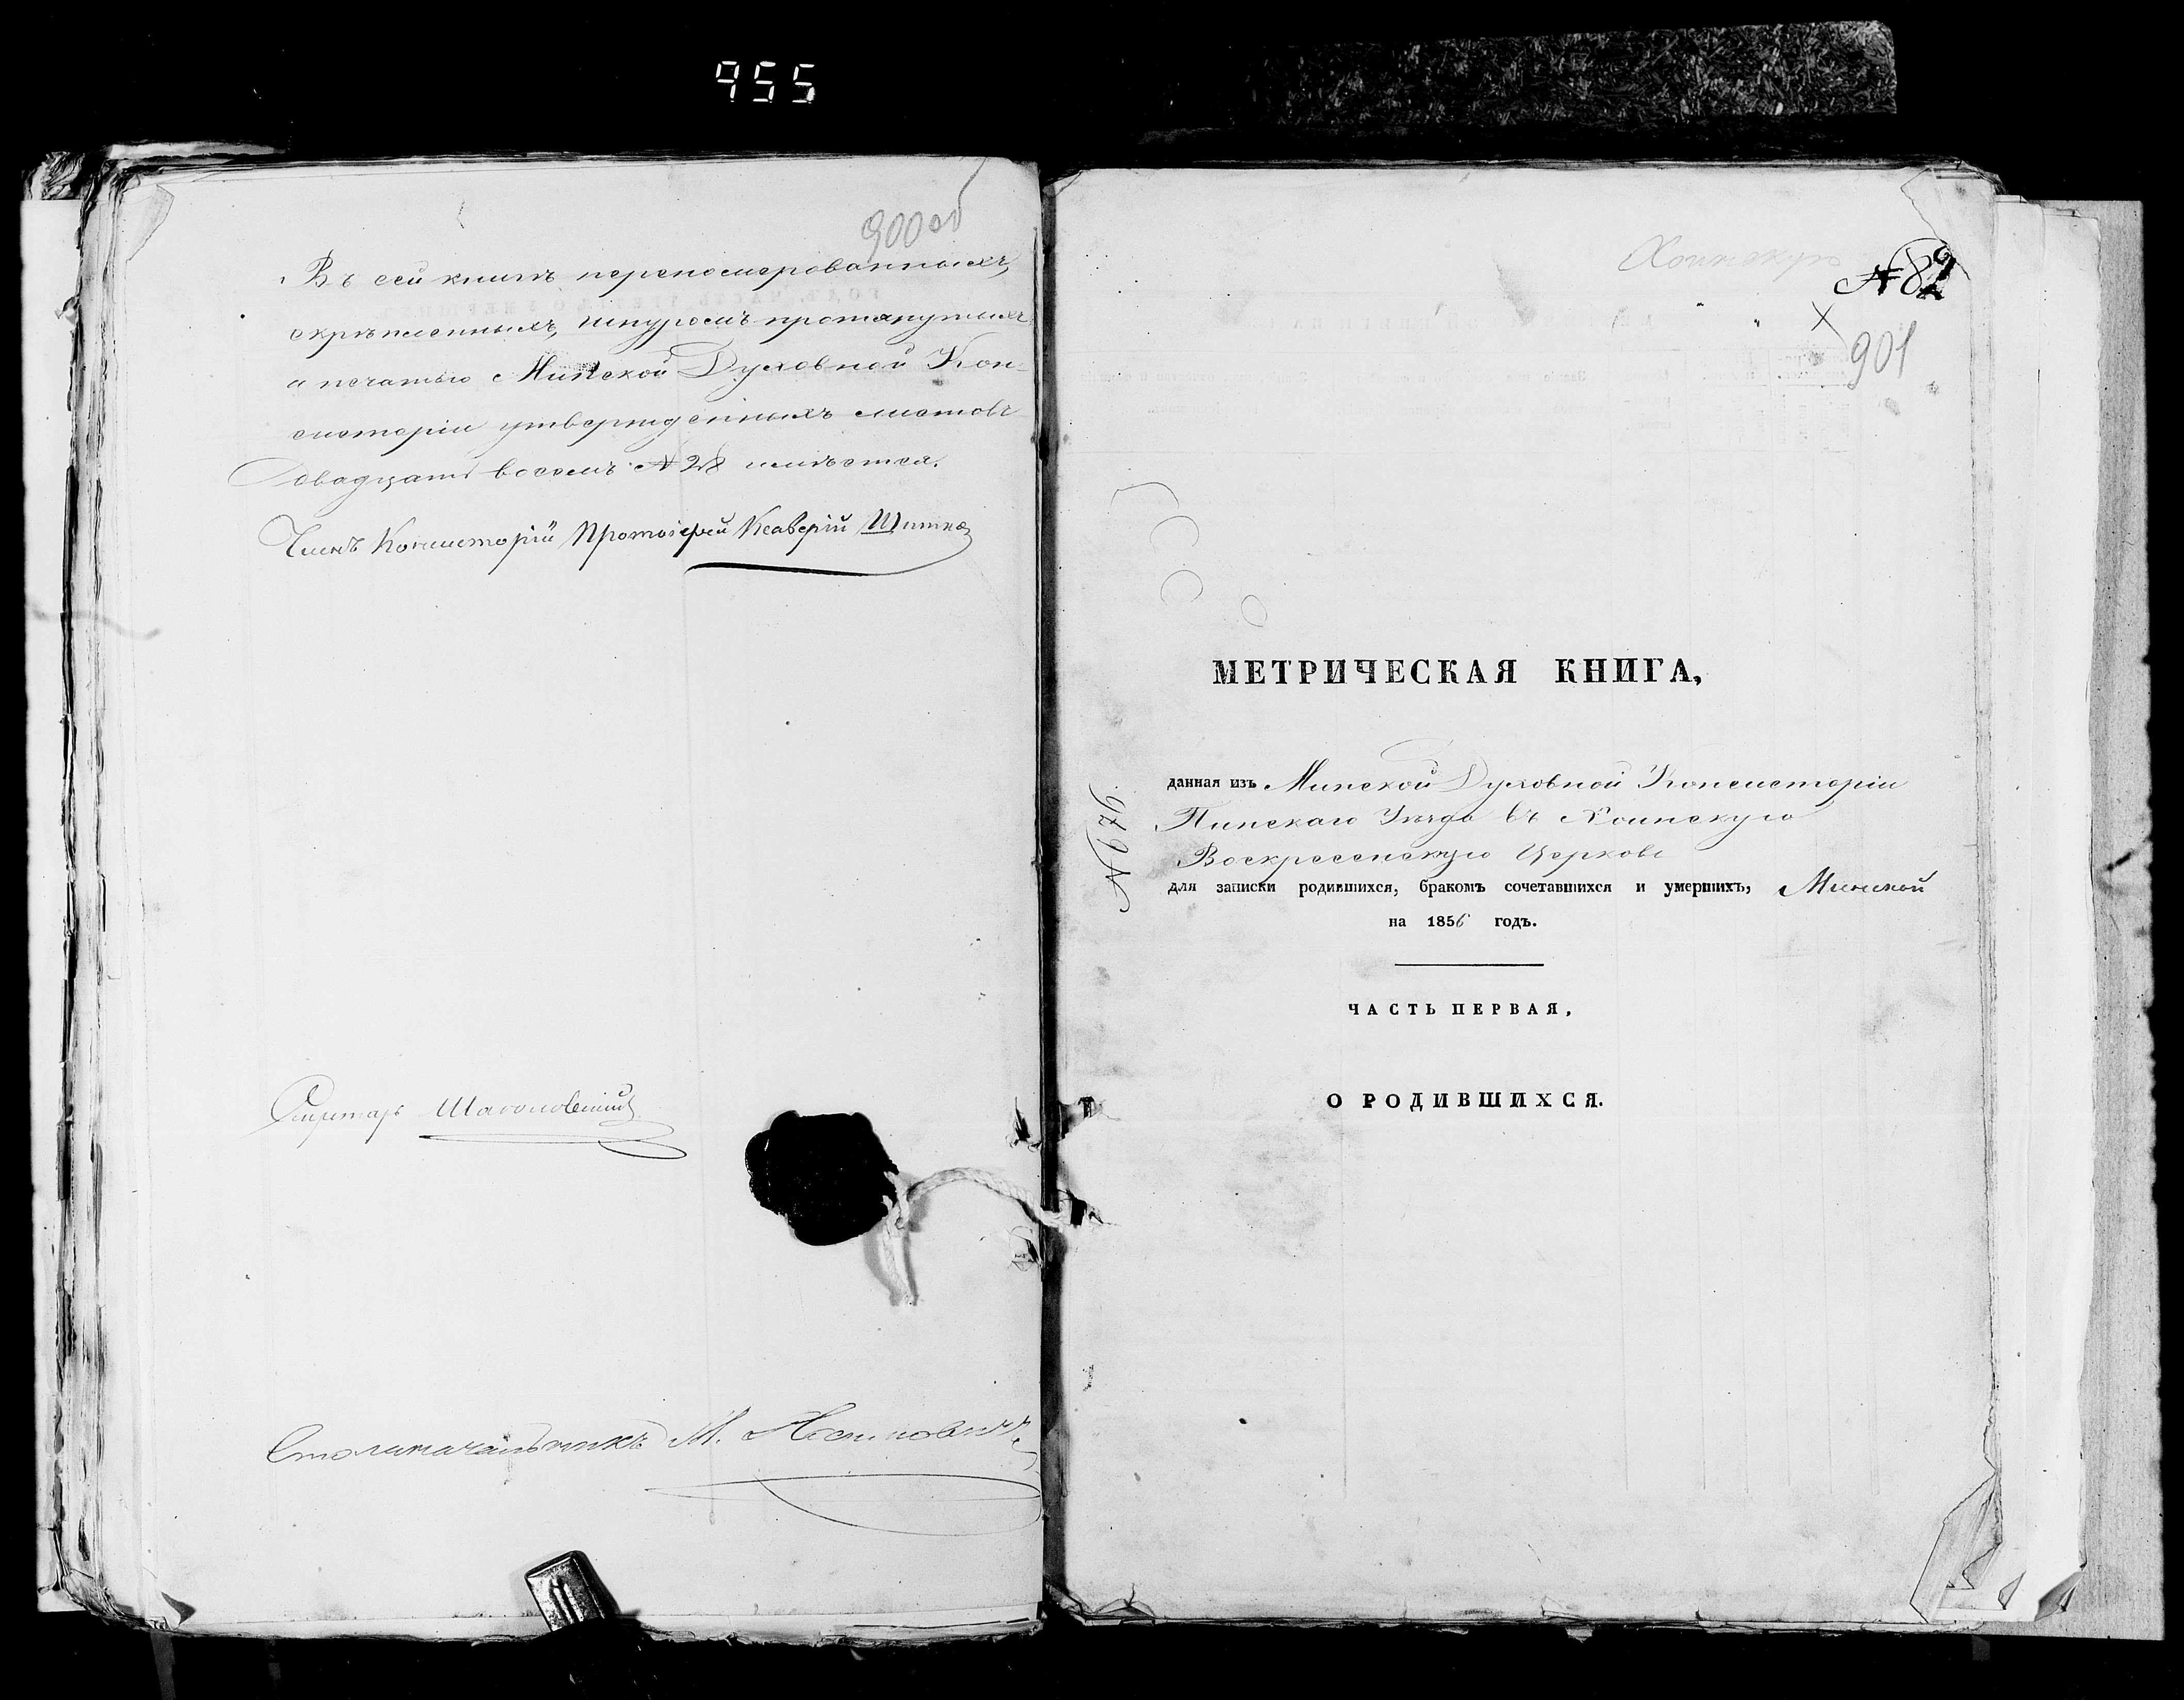 955
900 об
Въ сей книгѣ переномерованныхъ,
скрѣпленныхъ, шнуромъ протянутыхъ
и печатью Минской Духовной Кон-
систоріи утвержденныхъ листовъ
двадцать восемь № 28 имѣется.
Членъ Консисторіи Протоіерей Ксаверій
Секретарь
Столоначальникъ М.
№ 82
901
МЕТРИЧЕСКАЯ КНИГА,
данная изъ Минской Духовной Консисторіи
Пинскаго Уѣзда въ Хоинскую
Воскресенскую Церковь
для записки родившихся, бракомъ сочетавшихся и умершихъ, Минской
на 1856 годъ.
ЧАСТЬ ПЕРВАЯ,
О РОДИВШИХСЯ.